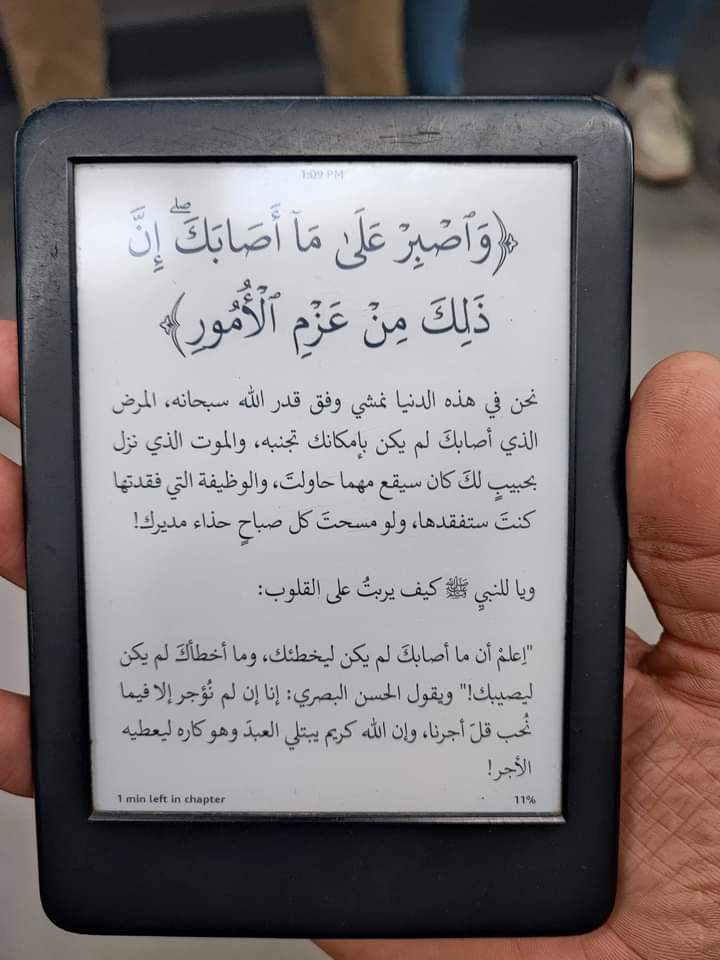 1:09 PM
﴿وَٱصۡبِرۡ عَلَىٰ مَآ أَصَابَكَۖ إِنَّ
ذَٰلِكَ مِنۡ عَزۡمِ ٱلۡأُمُورِ﴾
نحن في هذه الدنيا نمشي وفق قدر الله سبحانه، المرض
الذي أصابكَ لم يكن بإمكانك تجنبه، والموت الذي نزل
بحبيبٍ لكَ كان سيقع مهما حاولتَ، والوظيفة التي فقدتها
كنتَ ستفقدها، ولو مسحتَ كل صباحٍ حذاء مديرك!
ويا للنبيِ ﷺ كيف يربتُ على القلوب:
"اِعلمْ أن ما أصابكَ لم يكن ليخطئك، وما أخطأكَ لم يكن
ليصيبك!" ويقول الحسن البصري: إنا إن لم نُؤجر إلا فيما
نُحب قلَ أجرنا، وإن الله كريم يبتلي العبدَ وهو كاره ليعطيه
الأجر!
1 min left in chapter 11%